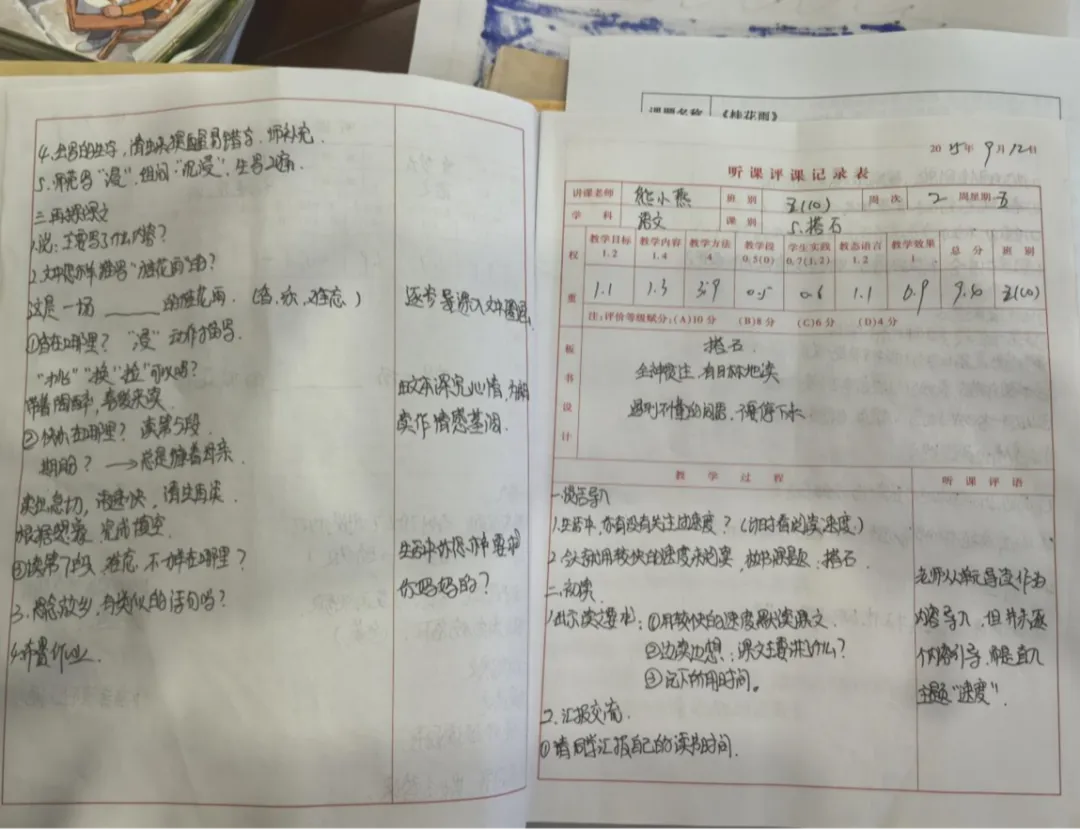 4.生写的生字,请生来提醒易错字.师补充.
5.师范写“浸”,组词:“沉浸”,生写2遍.
三.再读课文
1.说:主要写了什么内容?
2.文中怎样描写“桂花雨”的?
这是一场____的桂花雨.(香、欢、难忘.)
①香在哪里?“浸”动作描写.
“挑”“换”“拉”可以吗?
带着陶醉,喜爱来读.
②快乐在哪里?读第5段
期盼?→总是缠着母亲.
读出急切,语速快,请生再读.
根据感受,完成填空.
③读第7段,难忘,不一样在哪里?
3.思念故乡,有类似的语句吗?
4.布置作业.
逐步导课入文中
由文本深究心情,为朗
读作情感基调.
生活中你怎样要求
你妈妈的?
课题名称 《桂花雨》
2025年9月12日
听课评课记录表
讲课老师 熊小燕 班别 五(10) 周次 2 周星期 五
学科 语文 课别 5.搭石
权重 教学目标 1.2 教学内容 1.4 教学方法 4 教学段 0.5(0) 学生实践 0.7(1.2) 教态语言 1.2 教学效果 1 总分 班别
1.1 1.3 3.9 0.5 0.6 1.1 0.9 9.40 五(10)
注:评价等级赋分:(A)10分 (B)8分 (C)6分 (D)4分
板书设计
搭石.
全神贯注,有目标地读
遇到不懂的词语,不要停下来
教学过程 听课评语
一.谈话导入
1.生活中,你有没有关注过速度?(比如看的阅读速度.)
2.今天就用较快的速度来阅读,板书课题:搭石.
二.初读
1.出示读文要求:①用较快的速度默读课文.
②边读边想:课文主要讲了什么?
③记下所用时间。
2.汇报交流.
①请同学汇报自己的读书时间.
老师从单元导读作为
内容导入,但并未逐
个内容引导,而是直入
主题“速度”.